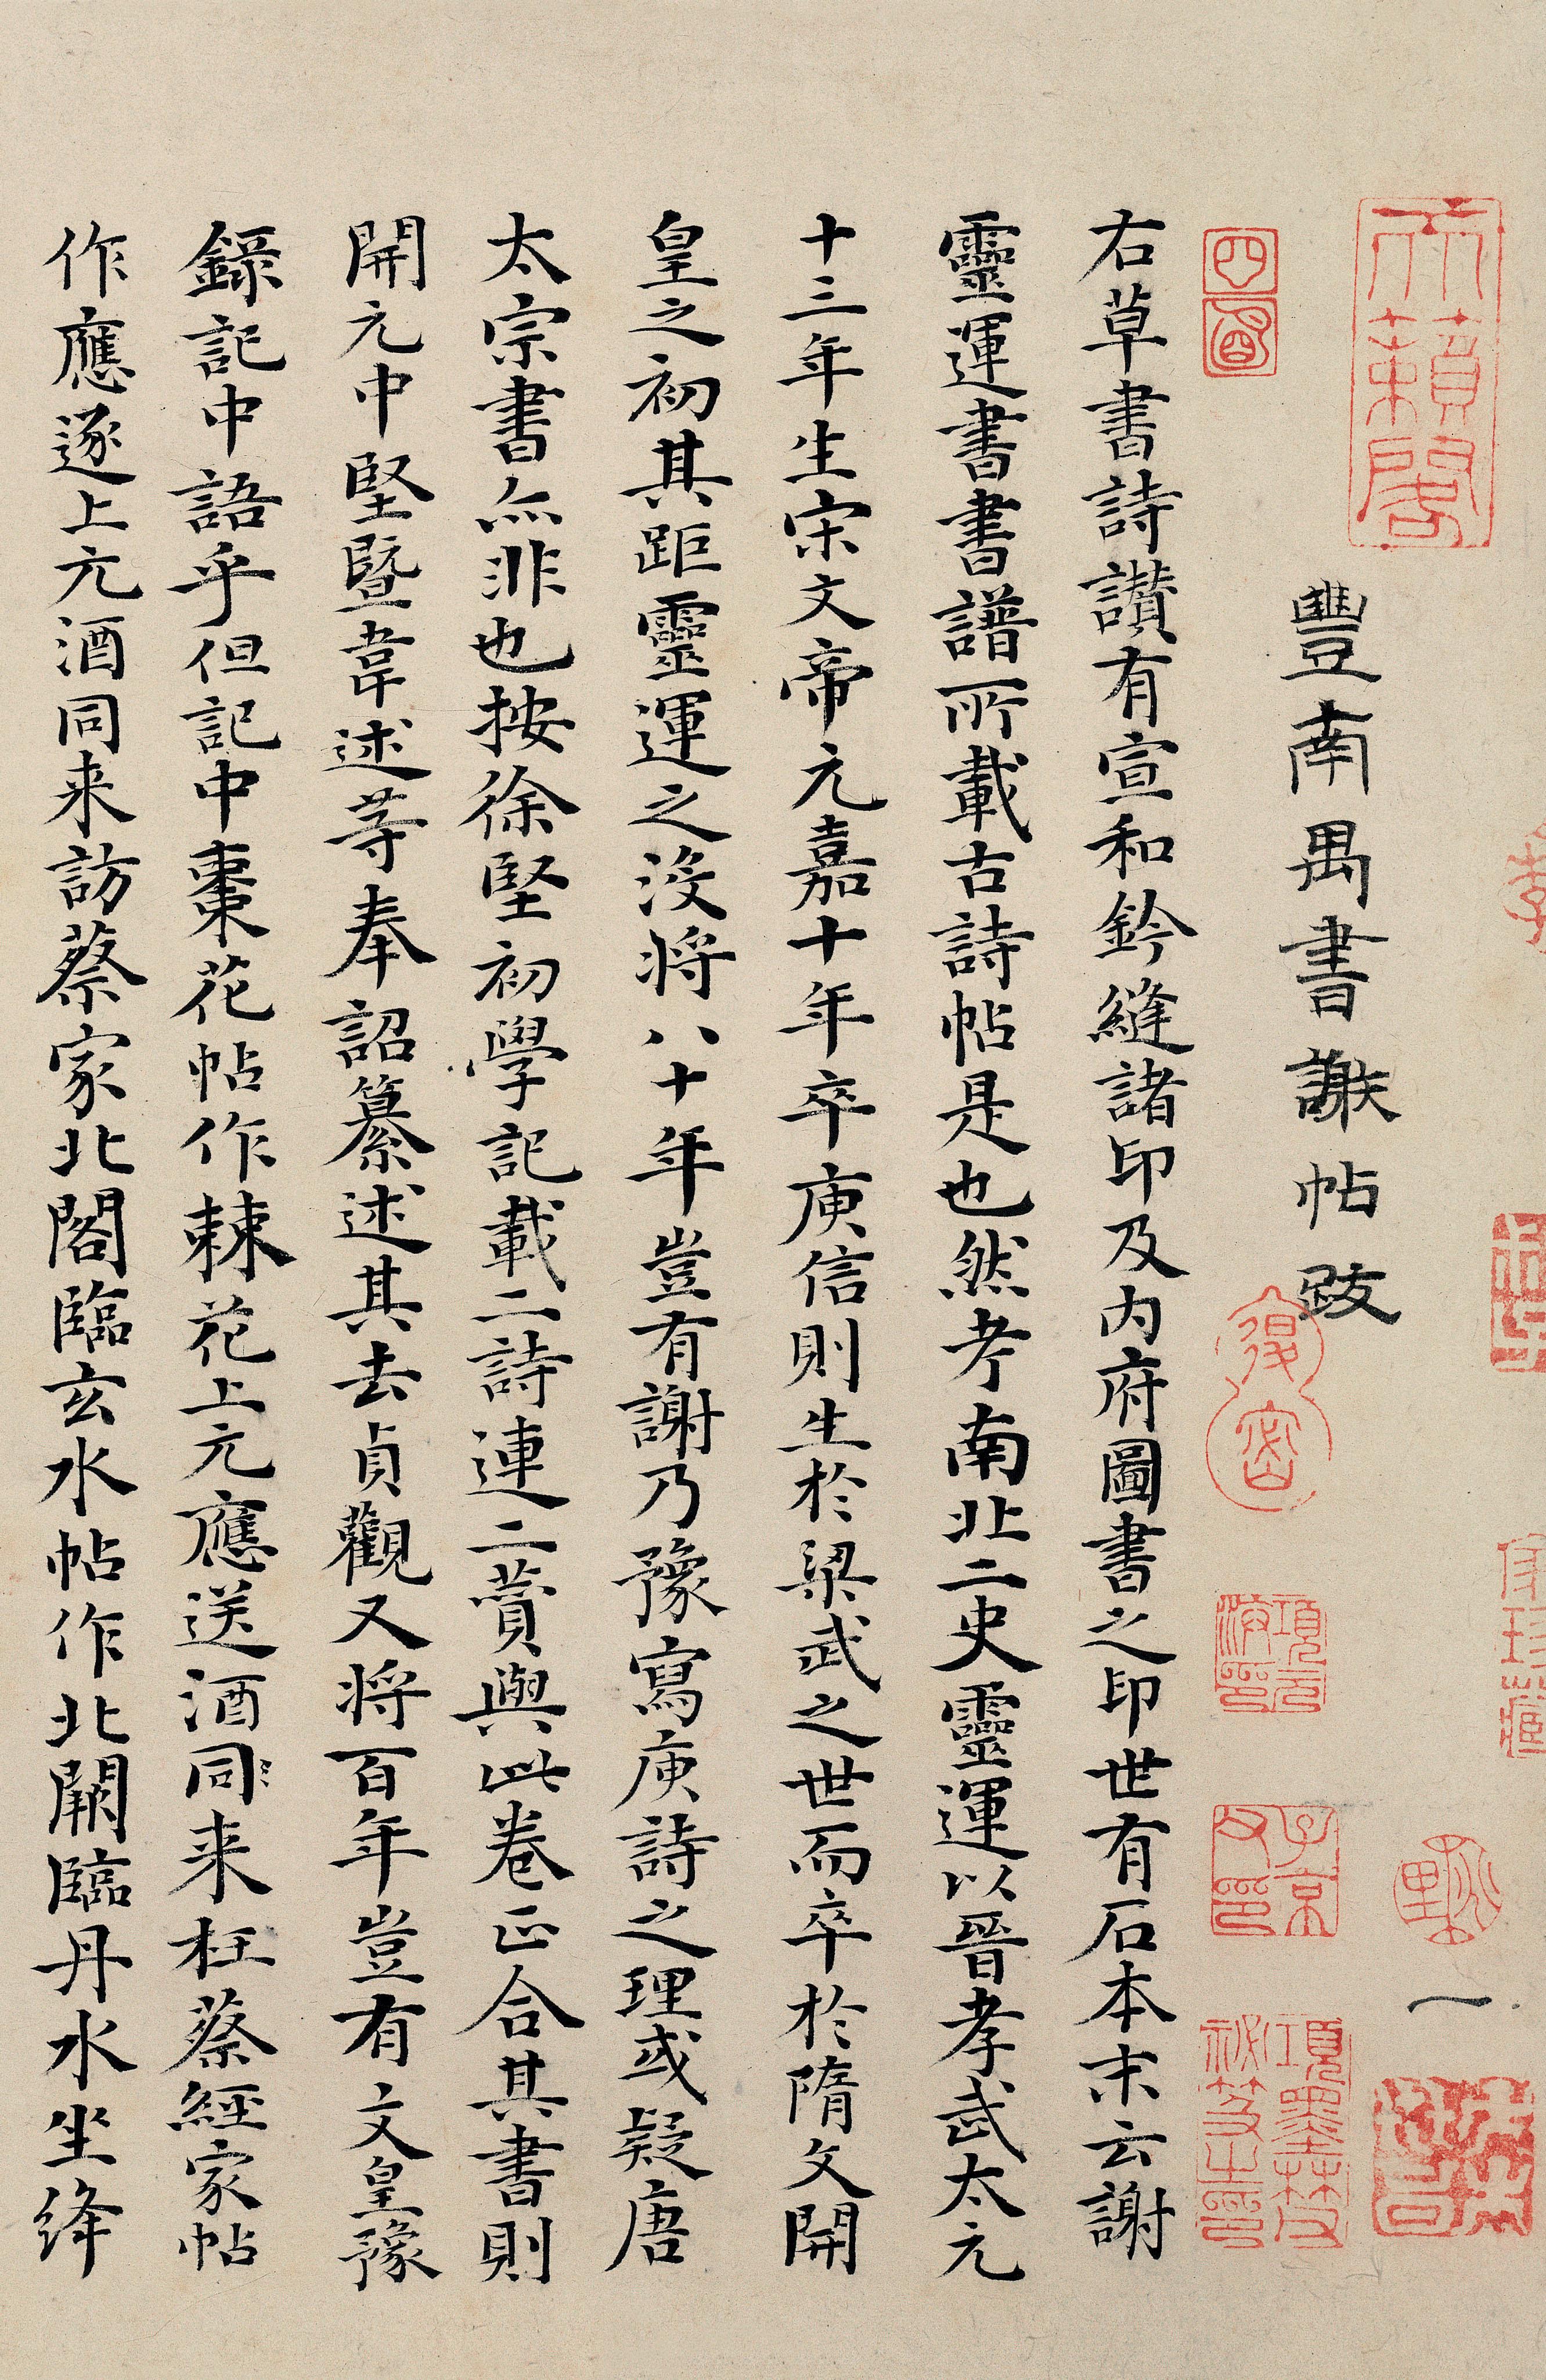 天籟閣
豐南禺書謝帖跋
一
項元汴印
子京父印
項墨林父祕笈之印
右草書詩讃有宣和鈐縫諸印及内府圖書之印世有石本末云謝
靈運書書譜所載古詩帖是也然考南北二史靈運以晉孝武太元
十三年生宋文帝元嘉十年卒庾信則生於梁武之世而卒於隋文開
皇之初其距靈運之沒将八十年豈有謝乃豫寫庾詩之理或疑唐
太宗書亦非也按徐堅初學記載二詩連二賛與此卷正合其書則
開元中堅暨韋述等奉詔纂述其去貞觀又将百年豈有文皇豫
錄記中語乎但記中棗花帖作棘花上元應送酒同来枉蔡經家帖
作應逐上元酒同来訪蔡家北閣臨玄水帖作北闕臨丹水坐絳